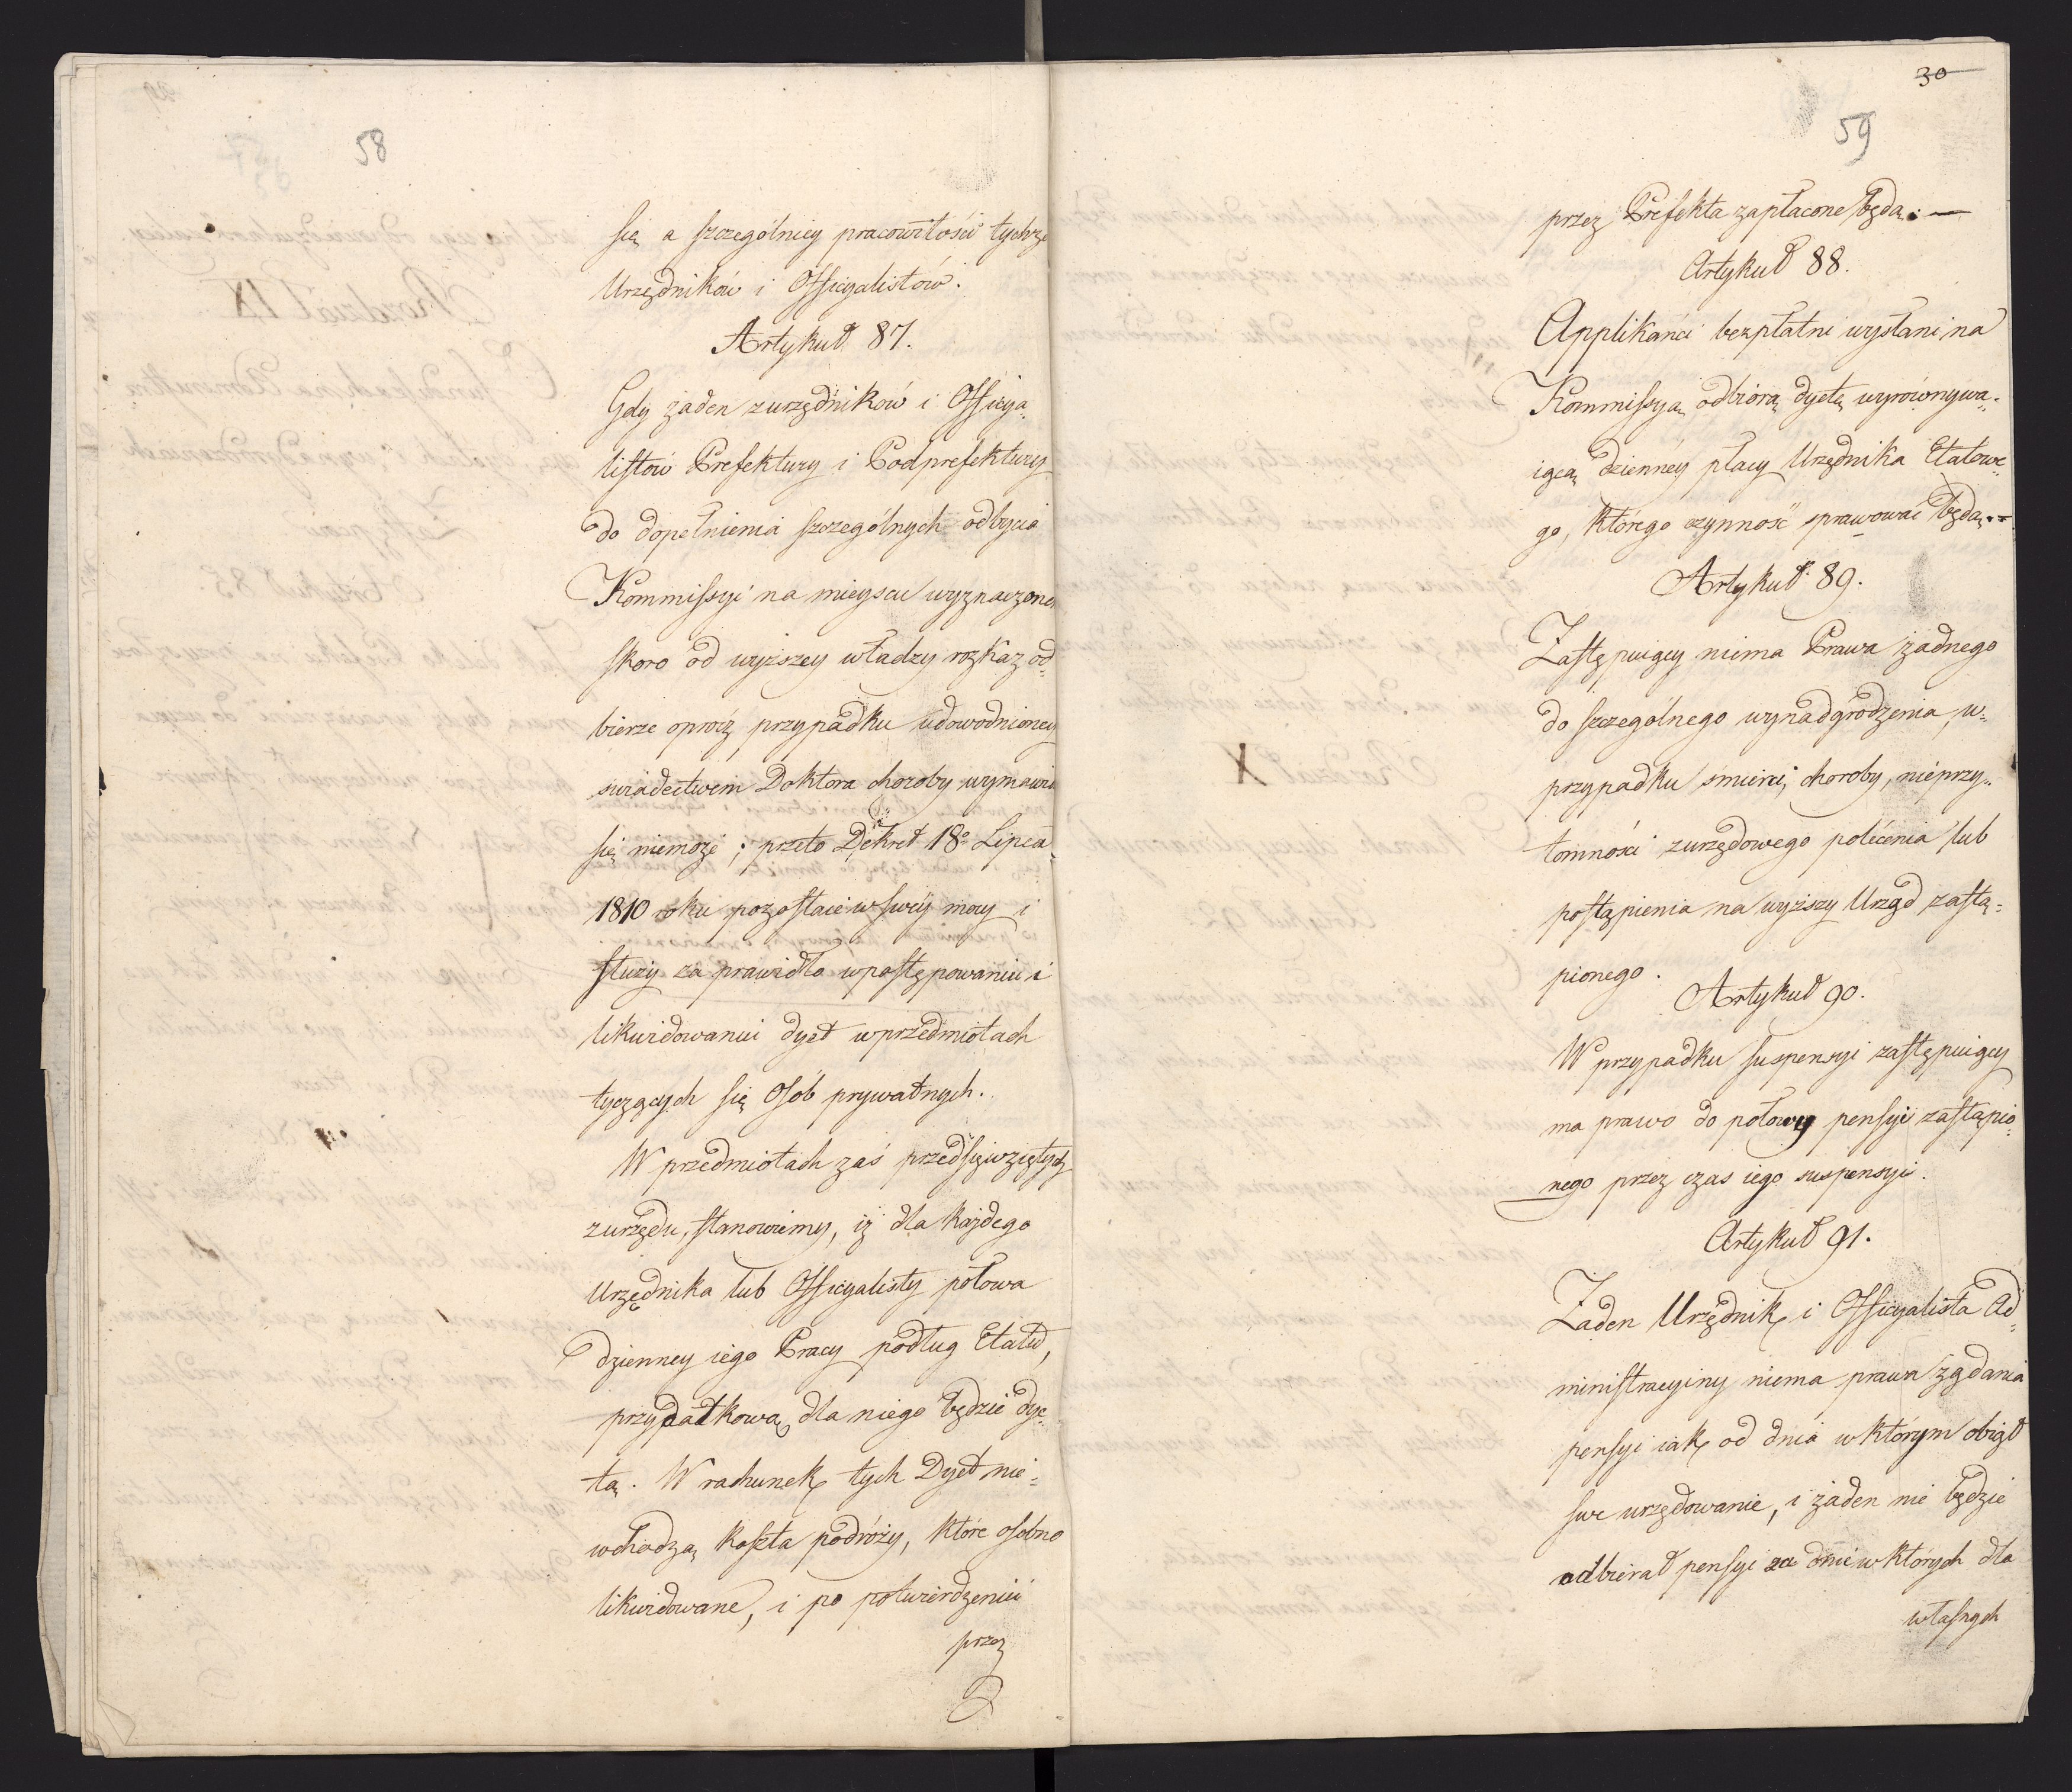 58
się a szczególniey pracowitość tychże
Urzędników i Officyalistów.
Artykuł 87.
Gdy żaden z urzędników i Officya„
listów Prefektury i Podprefektury
do dopełnienia szczególnych odbycia
Kommissyi na mieyscu wyznaczoney
skoro od wyższey władzy rozkaz od„
bierze oprócz przypadku udowodnioney
swiadectwem Doktora choroby wymawiać
się niemoże; przeto Dekret 18° Lipca
1810 roku pozostaie w swéy mocy i
służy za prawidło w postępowaniu i
likwidowaniu dyet w przedmiotach
tyczących się Osób prywatnych.
W przedmiotach zaś przedsięwziętych
z urzędu, stanowiemy, iż dla każdego
Urzędnika lub Officyalisty połowa
dzienney iego Pracy podług Etatu,
przydatkową dla niego będzie dye„
tą. W rachunek tych Dyet nie„
wchodzą koszta podróży, które osobno
likwidowane, i po potwierdzeniu
przez
30
59
przez Prefekta zapłacone będą. —
Artykuł 88.
Applikańci bezpłatni wysłani na
Kommissyą odbiorą dyetę wyrównywa„
iącą dzienney płacy Urzędnika Etatowe„
go, którego czynność sprawować będą. —
Artykuł 89.
Zastępuiący niema Prawa żadnego
do szczególnego wynadgródzenia, w„
przypadku śmierci, choroby, nieprzy„
tomności z urzędowego polécenia lub
postąpienia na wyższy Urząd zastą„
pionego.
Artykuł 90.
W przypadku suspensyi zastępuiący
ma prawo do połowy pensyi zastąpio„
nego przez czas iego suspensyi.
Artykuł 91.
Żaden Urzędnik i Officyalista Ad„
ministracyiny niema prawa żądania
pensyi iak od dnia w którym obiął
swe urzędowanie, i żaden nie będzie
odbierał pensyi za dnie w których dla
własnych